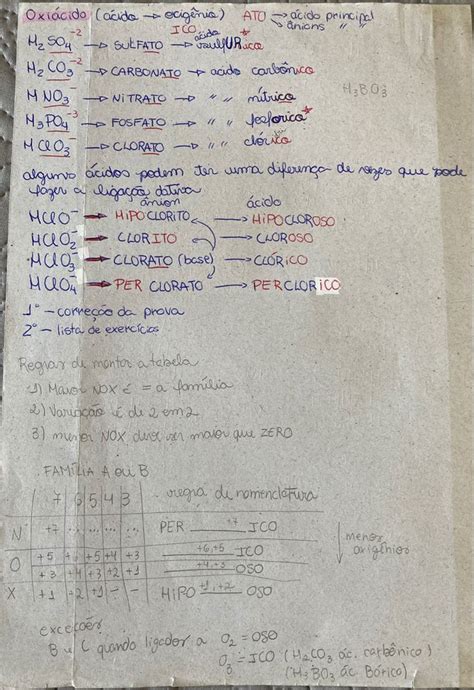 Oxiácido (ácido → oxigênio) ATO → ácido principal
ICO → ânions "
H₂SO₄⁻² → SULFATO → ácido sulfÚRico
H₂CO₃⁻² → CARBONATO → ácido carbônico
H₃BO₃
HNO₃⁻ → NITRATO → " " nítrico
H₃PO₄⁻³ → FOSFATO → " " fosfórico*
HClO₃⁻ → CLORATO → " " clórico
alguns ácidos podem ter uma diferença de vezes que pode
fazer a ligação dativa
ânion ácido
HClO⁻ → HIPOCLORITO → HIPOCLOROSO
HClO₂⁻ → CLORITO → CLOROSO
HClO₃⁻ → CLORATO (base) → CLÓRICO
HClO₄⁻ → PERCLORATO → PERCLORICO
1° - correção da prova
2° - lista de exercícios
Regras de montar a tabela
1) Maior NOX é = a família
2) Variação é de 2 em 2
3) menor NOX deve ser maior que ZERO
FAMÍLIA A ou B
7 6 5 4 3 regra de nomenclatura
N +7 ... ... ... ... PER ___+7___ ICO
O +5 +6 +5 +4 +3 ___+6,+5___ ICO
+3 +4 +3 +2 +1 ___+4,+3___ OSO
X +1 +2 +1 - - HIPO +1,+2 OSO
menos
oxigênios
exceções
B e C quando ligados a O₂ = OSO
O₃ = ICO (H₂CO₃ ác. carbônico)
(H₃BO₃ ác. Bórico)